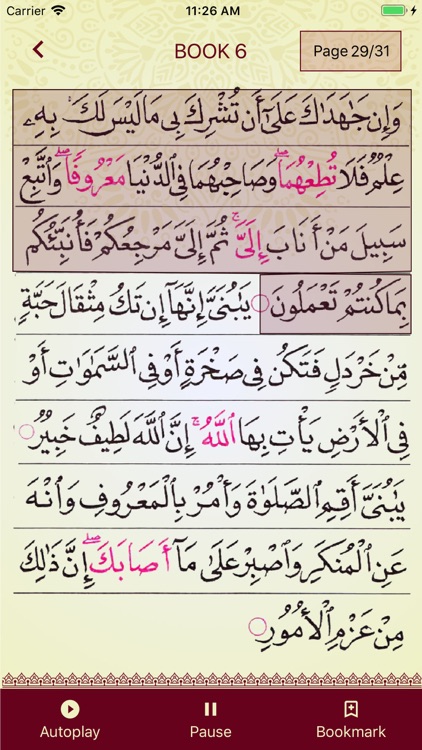 Carrier 11:26 AM
BOOK 6
Page 29/31
وَإِن جَٰهَدَاكَ عَلَىٰٓ أَن تُشْرِكَ بِى مَا لَيْسَ لَكَ بِهِۦ
عِلْمٌ فَلَا تُطِعْهُمَا ۖ وَصَاحِبْهُمَا فِى ٱلدُّنْيَا مَعْرُوفًا ۖ وَٱتَّبِعْ
سَبِيلَ مَنْ أَنَابَ إِلَىَّ ۚ ثُمَّ إِلَىَّ مَرْجِعُكُمْ فَأُنَبِّئُكُم
بِمَا كُنتُمْ تَعْمَلُونَ ○ يَٰبُنَىَّ إِنَّهَآ إِن تَكُ مِثْقَالَ حَبَّةٍ
مِّنْ خَرْدَلٍ فَتَكُن فِى صَخْرَةٍ أَوْ فِى ٱلسَّمَٰوَٰتِ أَوْ
فِى ٱلْأَرْضِ يَأْتِ بِهَا ٱللَّهُ ۚ إِنَّ ٱللَّهَ لَطِيفٌ خَبِيرٌ ○
يَٰبُنَىَّ أَقِمِ ٱلصَّلَوٰةَ وَأْمُرْ بِٱلْمَعْرُوفِ وَٱنْهَ
عَنِ ٱلْمُنكَرِ وَٱصْبِرْ عَلَىٰ مَآ أَصَابَكَ ۖ إِنَّ ذَٰلِكَ
مِنْ عَزْمِ ٱلْأُمُورِ ○
Autoplay Pause Bookmark